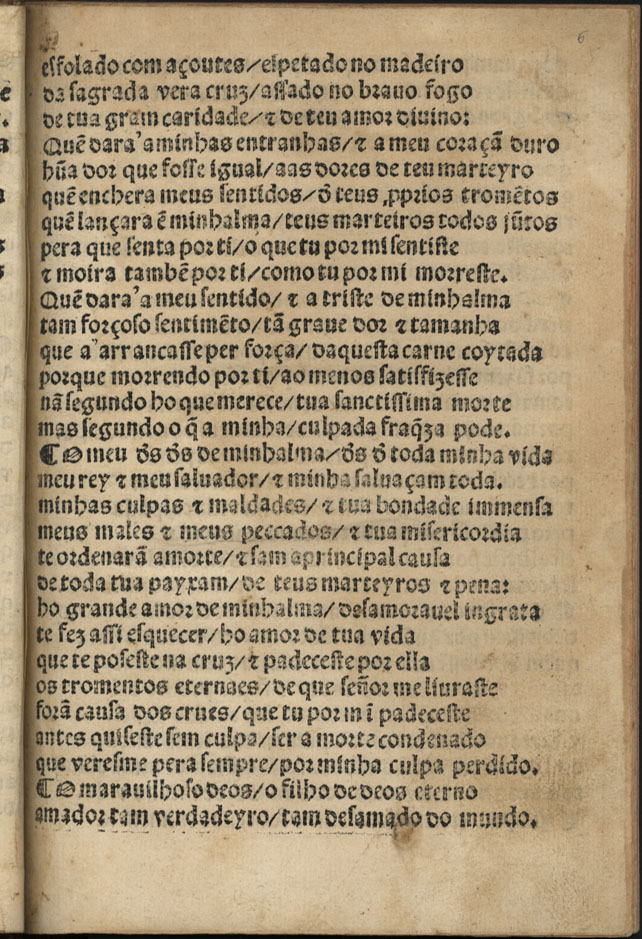 6
esfolado com açoutes/espetado no madeiro
da sagrada vera cruz/assado no brauo fogo
de tua gram caridade/⁊ de teu amor diuino:
Quẽ dara'a minhas entranhas/⁊ a meu coraçã duro
hũa dor que fosse igual/aas dores de teu marteyro
quẽ enchera meus sentidos/d̃ teus ꝓprios tromẽtos
quẽ lançara ẽ minhalma/teus marteiros todos jũtos
pera que senta por ti/o que tu por mi sentiste
⁊ moira tambẽ por ti/como tu por mi morreste.
Quẽ dara'a meu sentido/ ⁊ a triste de minhalma
tam forçoso sentimẽto/tã graue dor ⁊ tamanha
que a'arrancasse per força/ daquesta carne coytada
porque morrendo por ti/ao menos satisfizesse
nã segundo ho que merece/tua sanctissima morte
mas segundo o q̃ a minha/culpada fraq̃za pode.
¶O meu d̃s d̃s de minhalma/d̃s d̃ toda minha vida
meu rey ⁊ meu saluador/⁊ minha saluaçam toda.
minhas culpas ⁊ maldades/⁊ tua bondade immensa
meus males ⁊ meus peccados/⁊ tua misericordia
te ordenarã a morte/⁊ sam a principal causa
de toda tua payxam/de teus marteyros ⁊ pena:
ho grande amor de minhalma/desamorauel ingrata
te fez assi esquecer/ho amor de tua vida
que te poseste na cruz/⁊ padeceste por ella
os tromentos eternaes/de que señor me liuraste
forã causa dos crues/que tu por mĩ padeceste
antes quiseste sem culpa/ser a morte condenado
que veresme pera sempre/por minha culpa perdido.
¶O marauilhoso deos/o filho de deos eterno
amador tam verdadeyro/tam desamado do mundo.